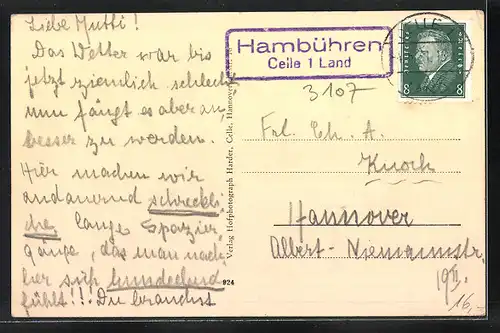 Liebe Mutti!
Das Wetter war bis
jetzt ziemlich schlecht
nun fängt es aber an,
besser zu werden.
Hier machen wir
andauernd schreckli
che lange Spazier
gänge, das man nach-
her sich hundeelend
fühlt!!! Du brauchst
Verlag Hofphotograph Harder, Celle, Hannover
924
Hambühren
Celle 1 Land
CELLE
DEUTSCHES REICH
8 8
3107
Frl. Ch. A.
Knoch
Hannover
Albert-Niemannstr.
19II.
16,-